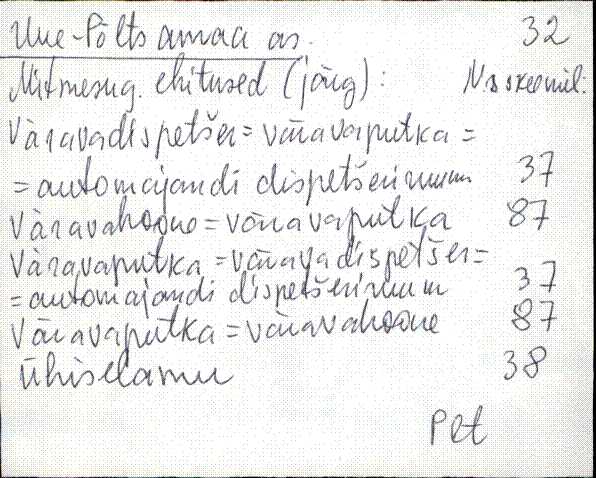 Uue-Põltsamaa as. 32
Mitmesug. ehitused (järg): Nr skeemil:
Väravadispetšer = väravaputka =
= automajandi dispetšeriruum 37
Väravahoone = väravaputka 87
Väravaputka = väravadispetšer =
= automajandi dispetšeriruum 37
Väravaputka = väravahoone 87
Ühiselamu 38
Plt